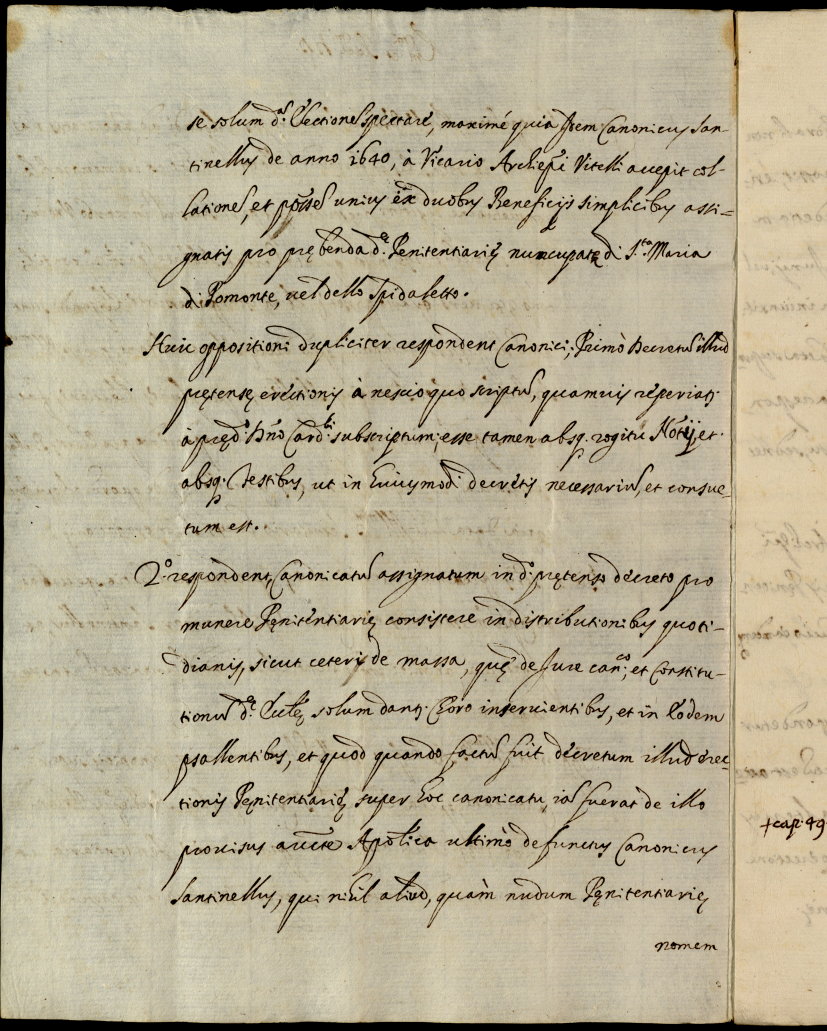 se solum d.ᵃ Electioneʃ spectare, maximé quia idem Canonicus San-
tinellus de anno 1640, à Vicario Archiep̃i Vitelli accepit col-
lationeʃ, et posseʃ unius ex duobus Beneficijs simplicibus assi=
gnatis pro prębenda d.ę Penitentiarię nuncupatę di S.ta Maria
di Pomonte, uel dello Spidaletto.
Huic oppositioni dupliciter respondent Canonici; Primò Decretũ illud
prętensę erectionis à nescio quo scriptũ, quamuis reperiat.
à pręd.o Card.li subscriptum, esse tamen absq. rogitu Notarij et
absq. Testibus, ut in huiusmodi decretis necessariũ, et consue-
tum est.
2.o respondent, Canonicatũ assignatum in d.o prętenso decreto pro
munere Pęnitentiarię consistere in distributionibus quoti-
dianis, sicut ceteri de massa, quę de Jure can.co, et Constitu-
tioniũ d.ę Eccl.ę solum dant. Choro inseruientibus, et in eodem
psallentibus, et quod quando factũ fuit decretum illud erec-
tionis Pęnitentiarię super hoc canonicatu, iã fuerat de illo
prouisus aucte Apolica ultimò defunctus Canonicus
Santinellus, qui nihil aliud, quàm nudum Pęnitentiarię
nomem
+cap. 49